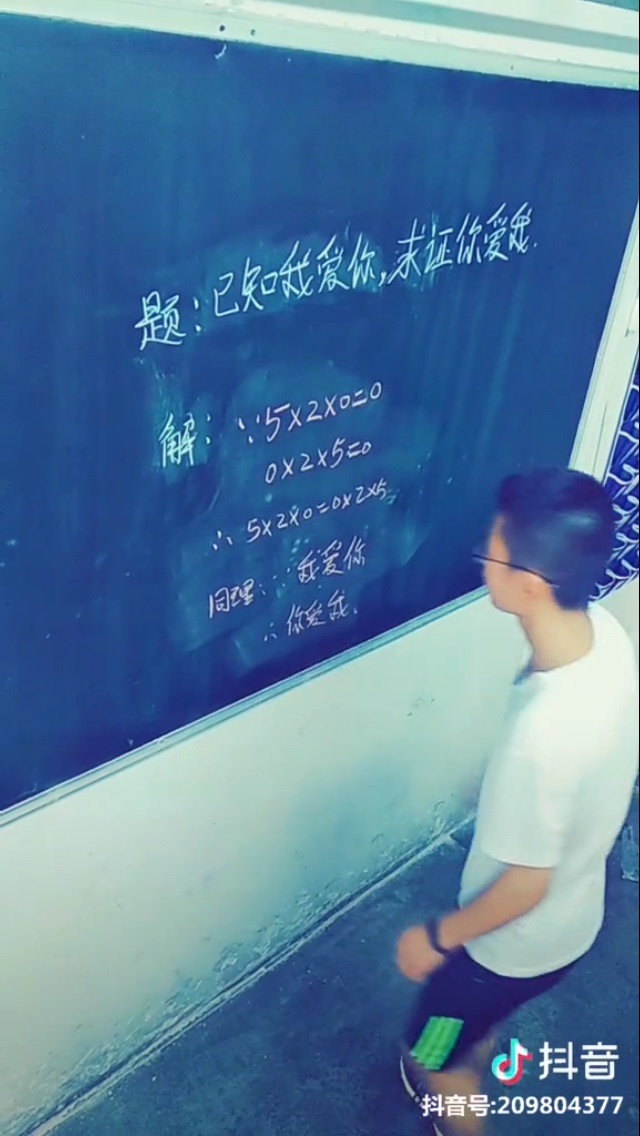 题:已知我爱你,求证你爱我.
解:∵5×2×0=0
0×2×5=0
∴5×2×0=0×2×5
同理:∵我爱你
∴你爱我.
抖音
抖音号:209804377